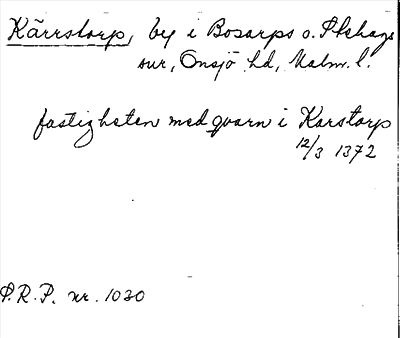 Kärrstorp, by i Bosarps o. Stehags
snr, Onsjö hd, Malm. l.
fastigheten med qvarn i Karstorp
12/3 1372
P.R.P. nr. 1030